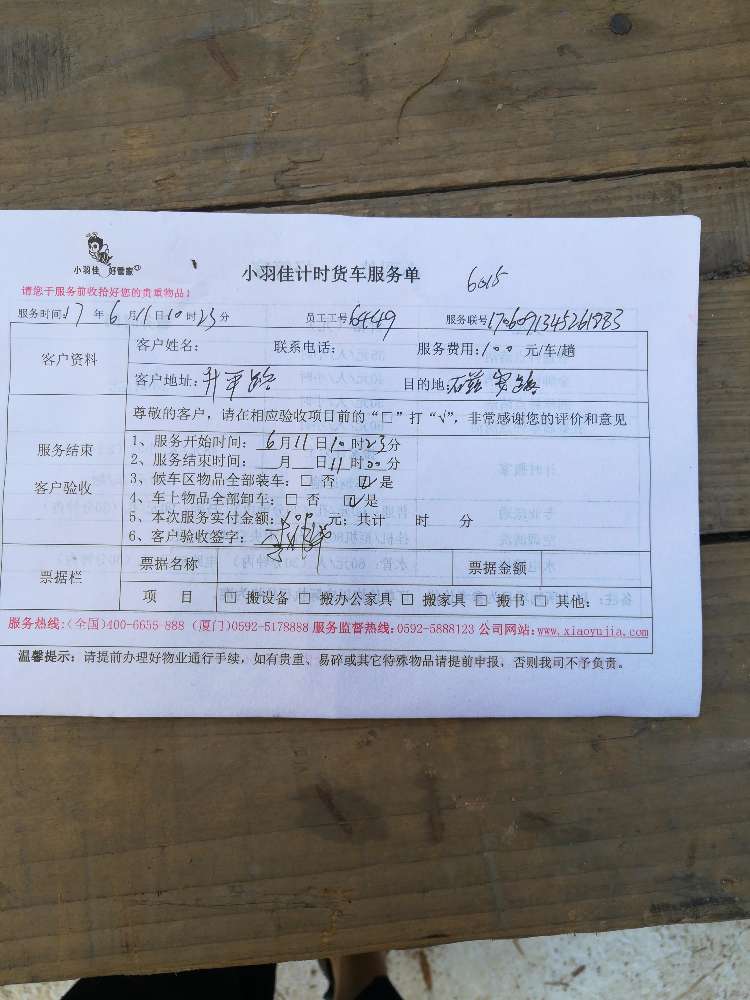 小羽佳 好管家
小羽佳计时货车服务单
6015
请您于服务前收拾好您的贵重物品!
服务时间17年6月11日10时23分 员工工号6449 服务联号1706091345261883
客户资料
客户姓名: 联系电话: 服务费用:100元/车/趟
客户地址:升平路 目的地:
服务结束
客户验收
尊敬的客户,请在相应验收项目前的“□”打“√”,非常感谢您的评价和意见
1、服务开始时间:6月11日10时23分
2、服务结束时间: 月 日11时00分
3、候车区物品全部装车:□否 ☑是
4、车上物品全部卸车:□否 ☑是
5、本次服务实付金额:100元;共计 时 分
6、客户验收签字:
票据栏
票据名称 票据金额
项 目 □搬设备 □搬办公家具 □搬家具 □搬书 □其他:
服务热线:(全国)400-6655-888 (厦门)0592-5178888 服务监督热线:0592-5888123 公司网站:www.xiaoyujia.com
温馨提示:请提前办理好物业通行手续,如有贵重、易碎或其它特殊物品请提前申报,否则我司不予负责。